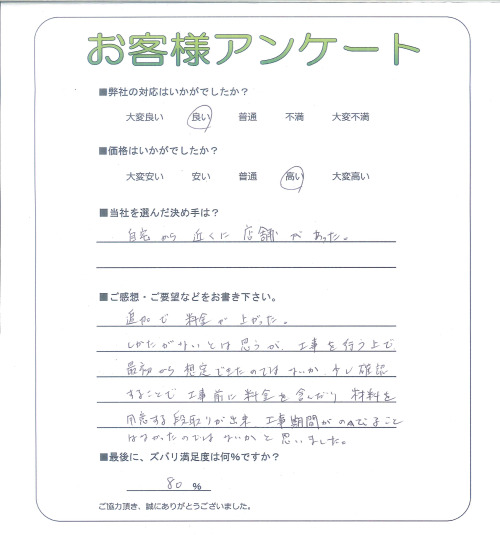 お客様アンケート
■弊社の対応はいかがでしたか？
大変良い 良い 普通 不満 大変不満
■価格はいかがでしたか？
大変安い 安い 普通 高い 大変高い
■当社を選んだ決め手は？
自宅から近くに店舗があった。
■ご感想・ご要望などをお書き下さい。
追加で料金が上がった。
しかたがないとは思うが、工事を行う上で
最初から想定できたのではないか、少し確認
することで工事前に料金を含んだり材料を
用意する段取りが出来、工事期間がのびること
はなかったのではないかと思いました。
■最後に、ズバリ満足度は何％ですか？
80 %
ご協力頂き、誠にありがとうございました。